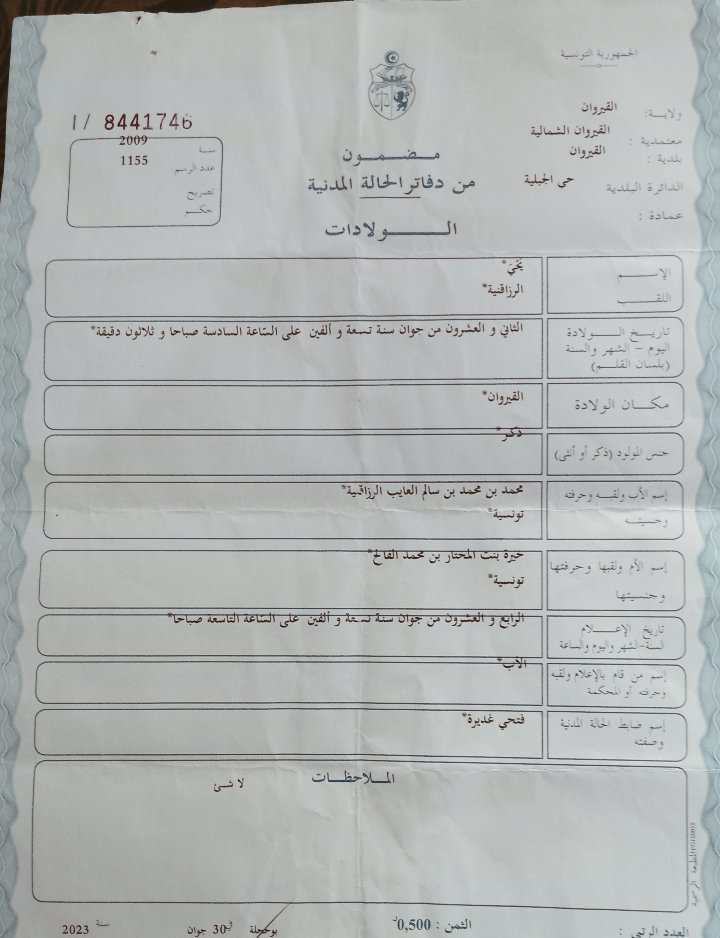 الجمهورية التونسية
ولايـة: القيروان
معتمدية : القيروان الشمالية
بلدية : القيروان
الدائرة البلدية حي الجبلية
عمادة :
I/ 8441746
سنة 2009
عدد الرسم 1155
تصريح
حكم
مضمون
من دفاتر الحالة المدنية
الـولادات
الإسم يحيَ*
اللقب الرزاقنية*
تاريخ الولادة
اليوم - الشهر والسنة
(بلسان القلم)
الثاني و العشرون من جوان سنة تسعة و ألفين على السّاعة السادسة صباحا و ثلاثون دقيقة*
مكان الولادة القيروان*
جنس المولود (ذكر أو أنثى) ذكر*
إسم الأب ولقبه وحرفته محمد بن محمد بن سالم العايب الرزاقنية*
وجنسيته تونسية*
إسم الأم ولقبها وحرفتها خيرة بنت المختار بن محمد الفالح*
وجنسيتها تونسية*
تاريخ الإعلام
السنة-الشهر واليوم والساعة
الرابع و العشرون من جوان سنة تسعة و ألفين على السّاعة التاسعة صباحا*
إسم من قام بالإعلام ولقبه
وحرفته أو المحكمة
الأب*
إسم ضابط الحالة المدنية
وصفته
فتحي غديرة*
الملاحظات
لا شئ
العدد الرتبي :
الثمن : 0,500د
بوحجلة في 30 جوان سنة 2023